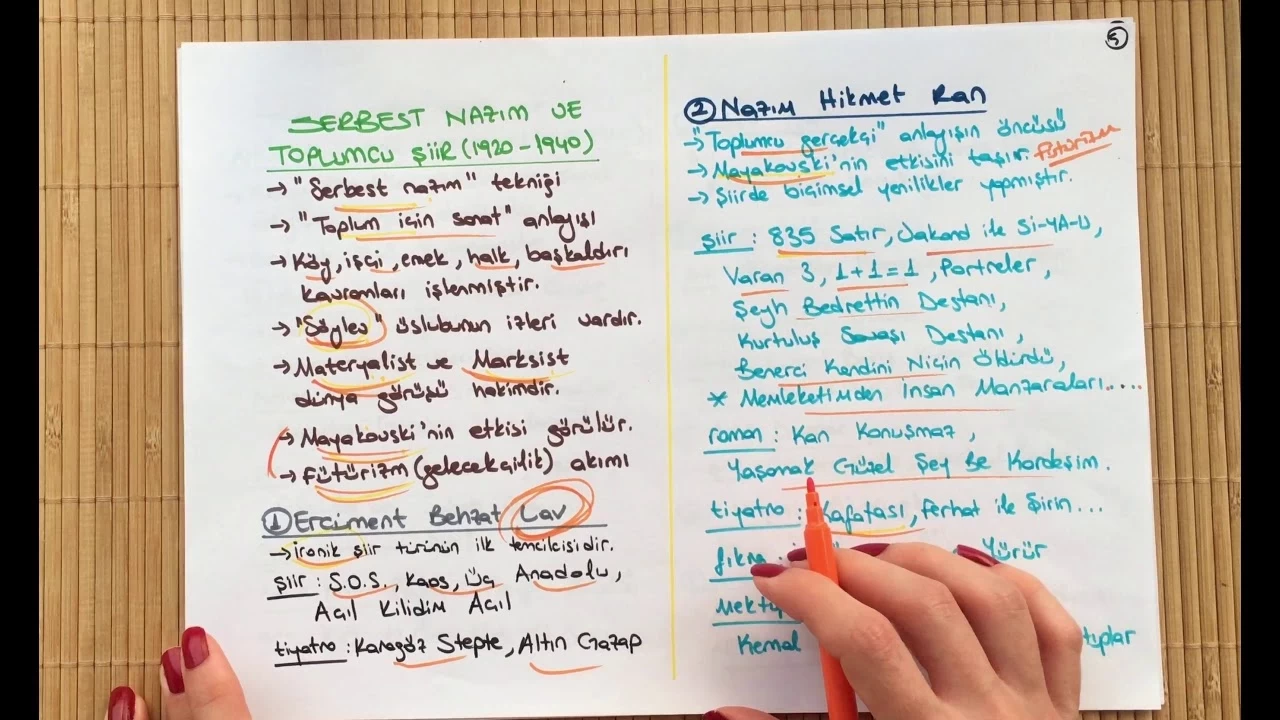 SERBEST NAZIM VE
TOPLUMCU ŞİİR (1920-1940)
→ "Serbest nazım" tekniği
→ "Toplum için sanat" anlayışı
→ Köy, işçi, emek, halk, başkaldırı
kavramları işlenmiştir.
→ "Söylev" üslubunun izleri vardır.
→ Materyalist ve Marksist
dünya görüşü hakimdir.
→ Mayakovski'nin etkisi görülür.
→ Fütürizm (gelecekçilik) akımı
① Erciment Behzat Lav
→ ironik şiir türünün ilk temcilcisidir.
şiir: S.O.S., Kaos, Üç Anadolu,
Açıl Kilidim Açıl
tiyatro: Karagöz Stepte, Altın Gazap
5
② Nazım Hikmet Ran
→ "Toplumcu gerçekçi" anlayışın öncüsü
→ Mayakovski'nin etkisini taşır. fütürizm
→ Şiirde biçimsel yenilikler yapmıştır.
şiir: 835 Satır, Jakond ile Sİ-YA-U,
Varan 3, 1+1=1, Portreler,
Şeyh Bedrettin Destanı,
Kurtuluş Savaşı Destanı,
Benerci Kendini Niçin Öldürdü,
* Memleketimden İnsan Manzaraları....
roman: Kan Konuşmaz,
Yaşamak Güzel Şey Be Kardeşim.
tiyatro: Kafatası, Ferhat ile Şirin...
fıkra: Yürür
Mektup
Kemal